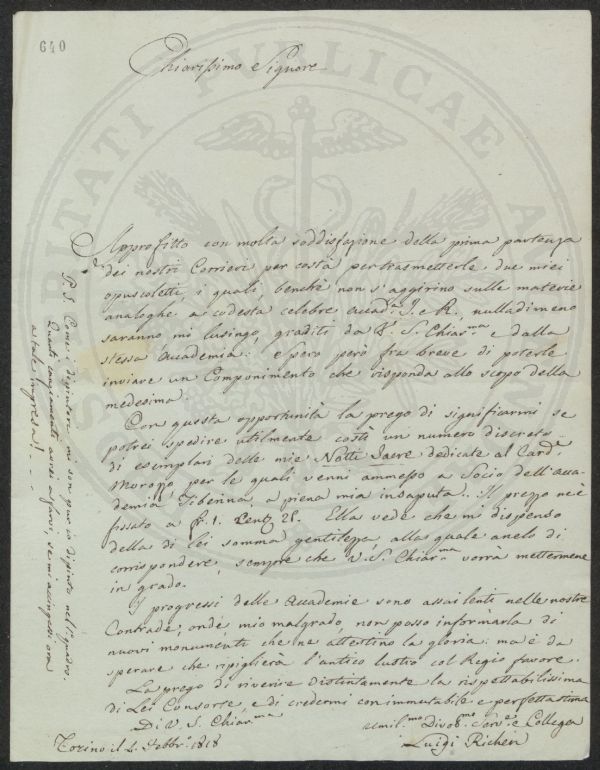 640
Chiarissimo Signore
Approfitto con molta soddisfazione della prima partenza
dei nostri Corrieri per costà per trasmetterle due miei
opuscoletti, i quali, benchè non s'aggirino sulle materie
analoghe a codesta celebre Accad.a I. e R., nulladimeno
saranno, mi lusingo, graditi da V. S. Chiar.ma e dalla
stessa Accademia: spero però fra breve di poterle
inviare un Componimento che risponda allo scopo della
medesima.
Con questa opportunità la prego di significarmi se
potrei spedire utilmente costà un numero discreto
di esemplari delle mie Notti Sacre dedicate al Card.
Morozzo per le quali venni ammesso a Socio dell'Acca-
demia Tiberina a piena mia insaputa. Il prezzo n'è
fissato a fr. 1. Cent. 25. Ella vede che mi dispenso
della di lei somma gentilezza, alla quale anelo di
corrispondere, sempre che V. S. Chiar.ma vorrà mettermene
in grado.
I progressi delle Accademie sono assai lenti nelle nostre
Contrade, onde, mio malgrado, non posso informarla di
nuovi monumenti che ne attestino la gloria: ma è da
sperare che ripiglierà l'antico lustro col Regio favore.
La prego di riverire distintamente la rispettabilissima
di Lei Consorte, e di credermi con immutabile e perfetta stima
Di V. S. Chiar.ma
umil.mo divot.mo Serv.e e Collega
Torino il 2. Febbr. 1818
Luigi Richeri
P. S. Come i dipintori mi son pur io dipinto nell'quadro.
Quanti cangiamenti avrei a farvi, se mi accingessi ora
a tale impresa!
SALUBRITATI PUBLICAE